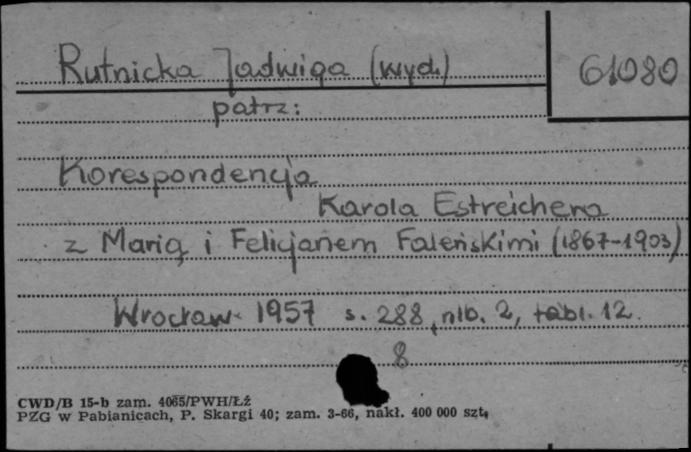 Rutnicka Jadwiga (wyd.)
61080
patrz:
Korespondencja
Karola Estreichera
z Marią i Felicjanem Faleńskimi (1867-1903)
Wrocław 1957 s. 288, nlb. 2, tabl. 12.
8
CWD/B 15-b zam. 4065/PWH/Łż
PZG w Pabianicach, P. Skargi 40; zam. 3-66, nakł. 400 000 szt.